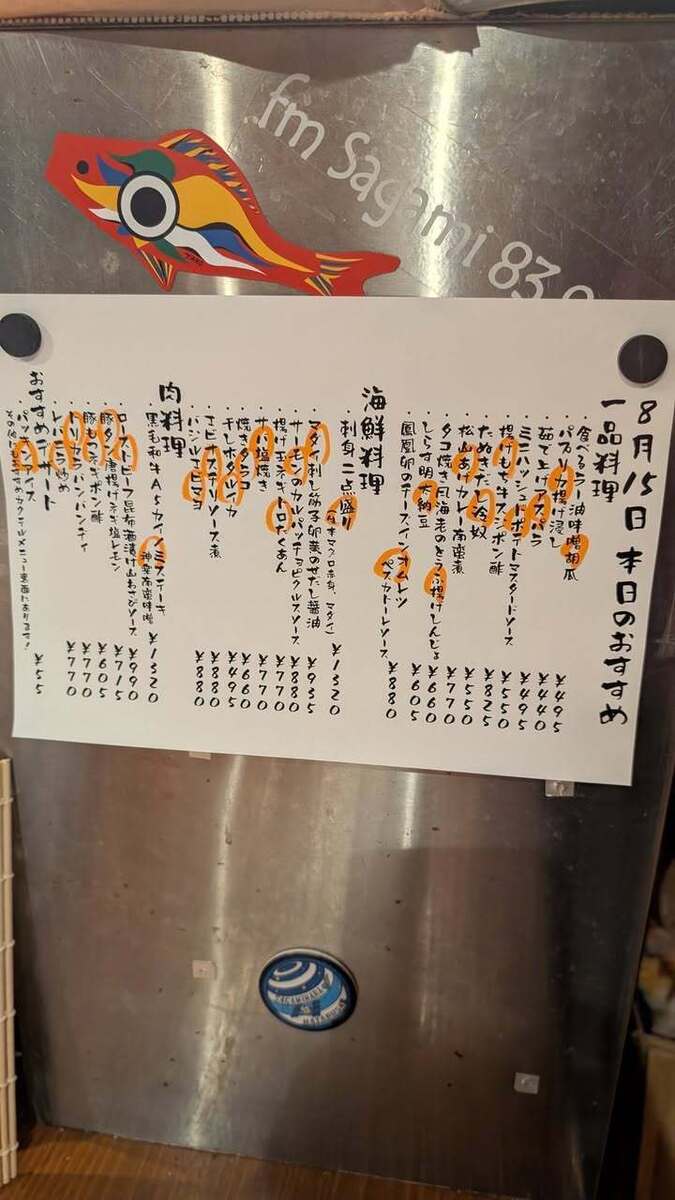 fm Sagami 83.9
8月15日 本日のおすすめ
一品料理
・食べるラー油味噌胡瓜 ¥495
・パプリカ揚げ浸し ¥440
・茹で上げアスパラ ¥495
・ミニハッシュドポテトマスタードソース ¥550
・揚げもち牛スジポン酢 ¥825
・たぬきだし冷奴 ¥550
・松山あげカレー南蛮煮 ¥770
・タコ焼き風海老のとうふ揚げしんじょ ¥660
・しらす明太納豆 ¥605
・鳳凰卵のチーズインオムレツ
ペスカトーレソース ¥880
海鮮料理
・刺身二点盛り
(生本マグロ赤身、マダイ) ¥1320
・マダイ刺し筋子卵黄のせだし醤油 ¥935
・サーモンのカルパッチョピクルスソース ¥880
・揚げ玉ネギトロたくあん ¥770
・サバ塩焼き ¥770
・焼きタラコ ¥660
・干しホタルイカ ¥495
・エビ
リソース煮 ¥880
・バジル
マヨ ¥880
肉料理
・黒毛和牛A5カイノミステーキ
神楽南蛮味噌 ¥1320
・ロースビーフ昆布酒漬け山わさびソース ¥990
・豚タン唐揚げネギ塩レモン ¥715
・豚もつネギポン酢 ¥605
・バンバンヂィ ¥770
・レバニラ炒め ¥770
おすすめデザート
・パッ
アイス ¥55
その他おすすめカクテルメニュー裏面にあります!